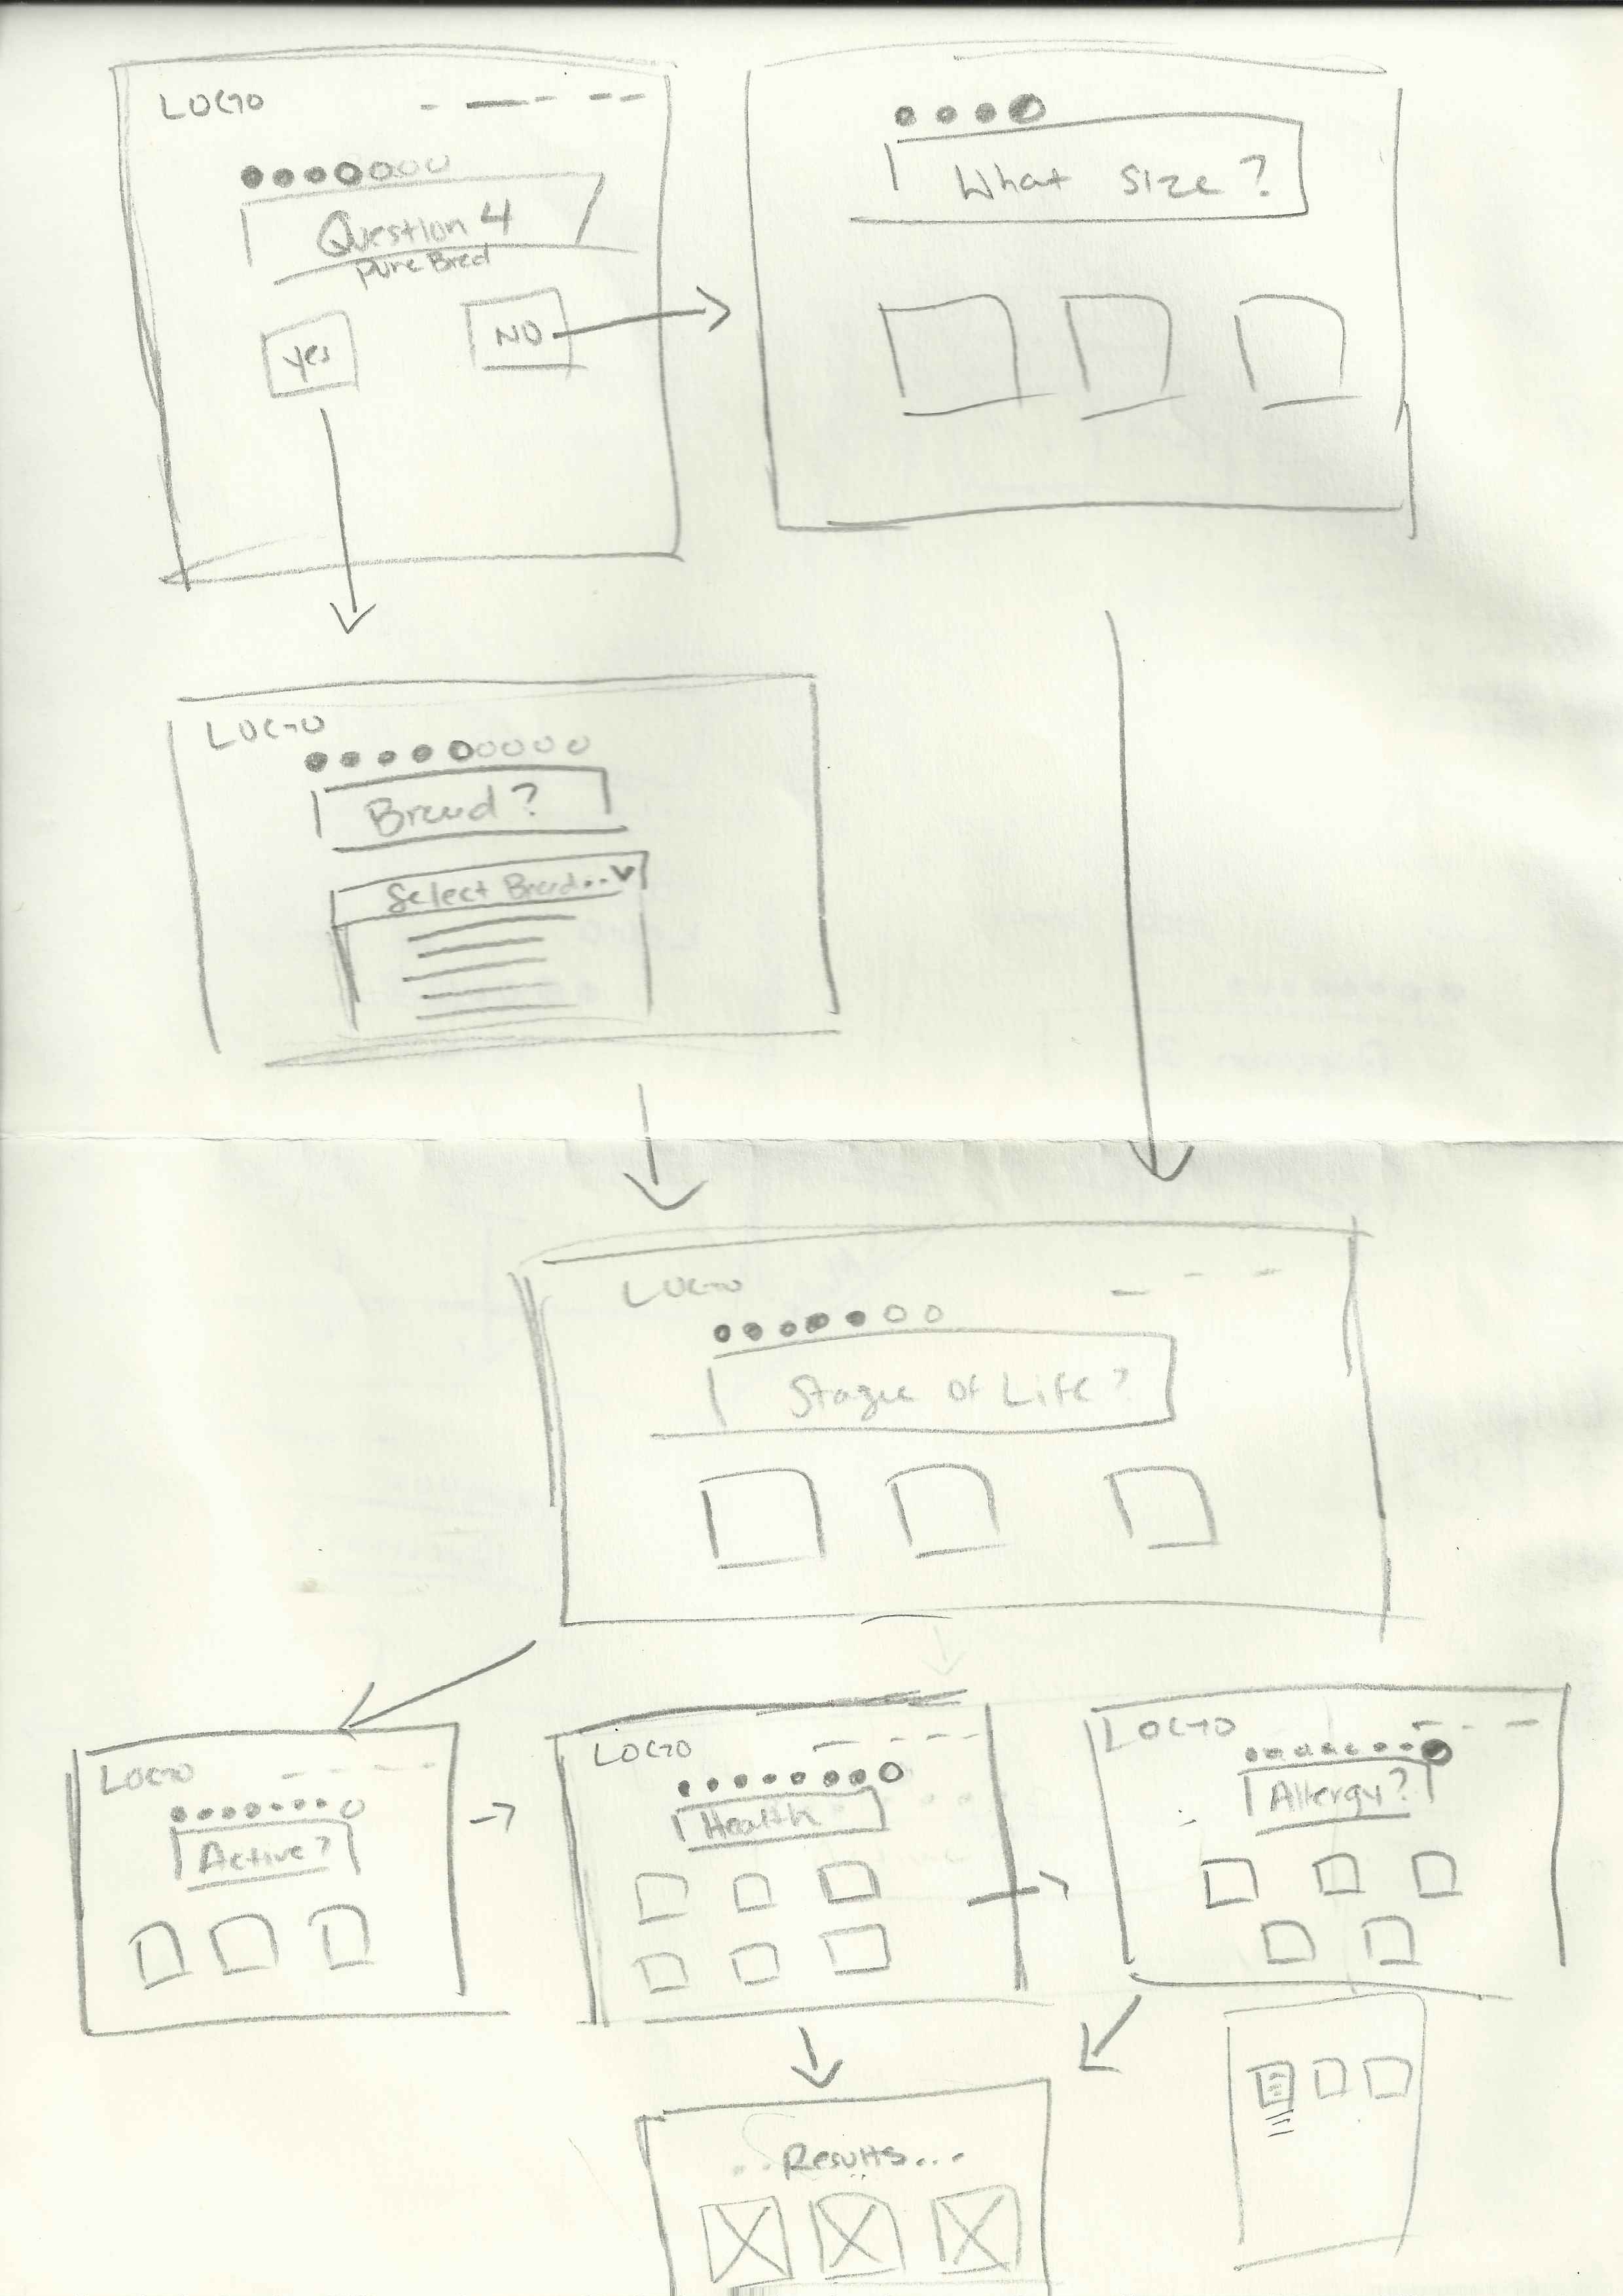 LOGO
Question 4
pure Bred
Yes
NO
What size?
LOGO
Breed?
Select Breed..
LOGO
Stage of Life?
LOGO
Active?
LOGO
Health
LOGO
Allergy?
Results...